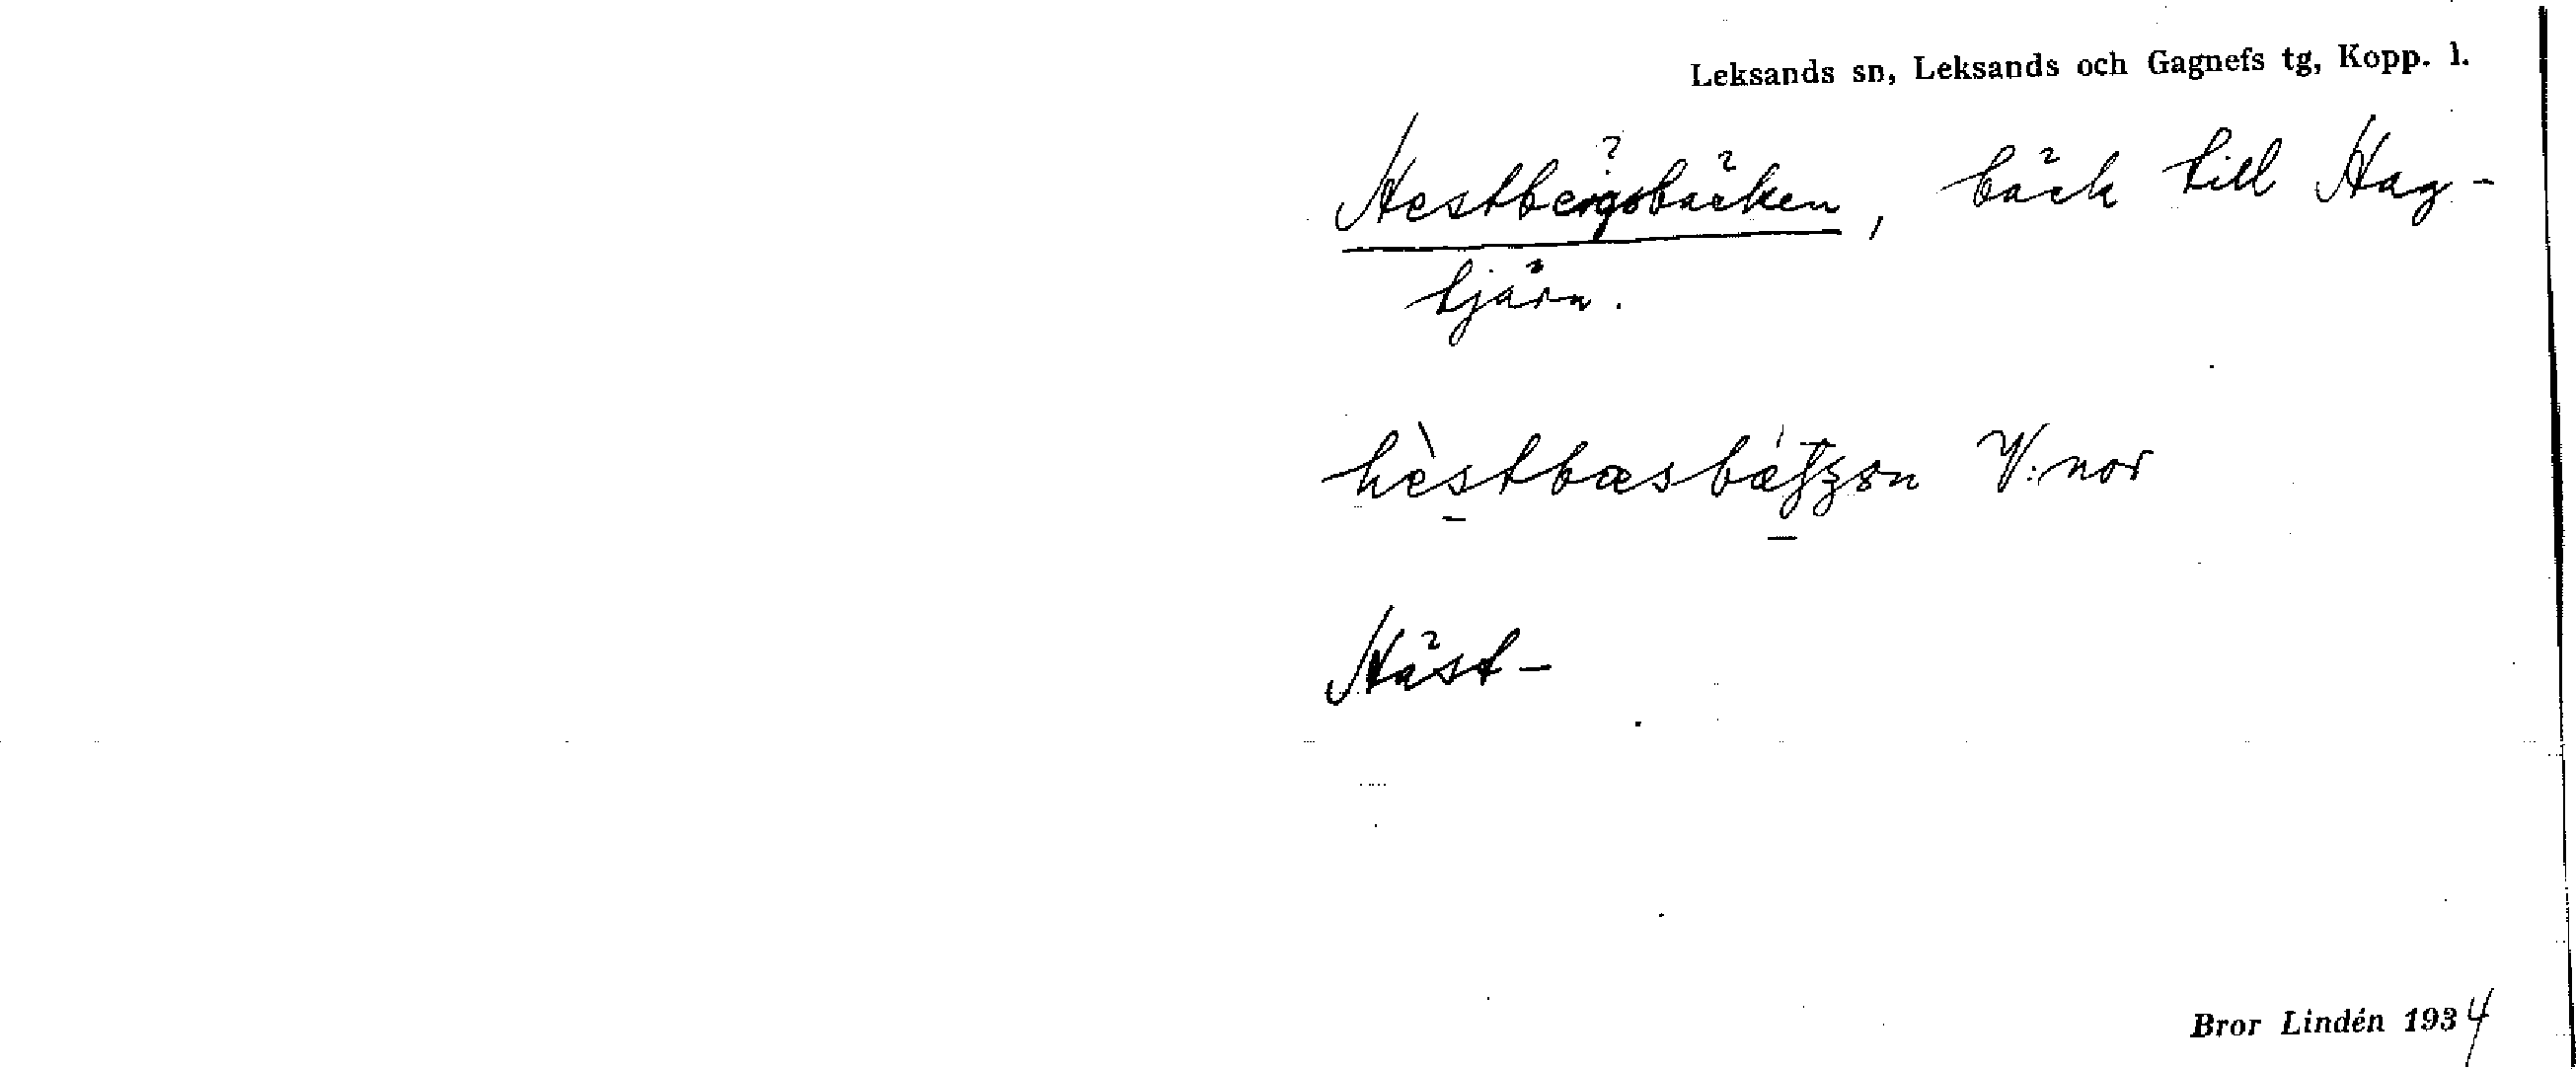 Leksands sn, Leksands och Gagnefs tg, Kopp. l.
Hestbergsbäcken, bäck till Hag-
tjärn.
V:nor
Häst-
Bror Lindén 1934